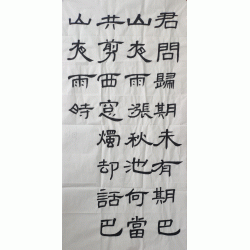 君問歸期未有期巴
山夜雨漲秋池何當
共剪西窓燭却話巴
山夜雨時